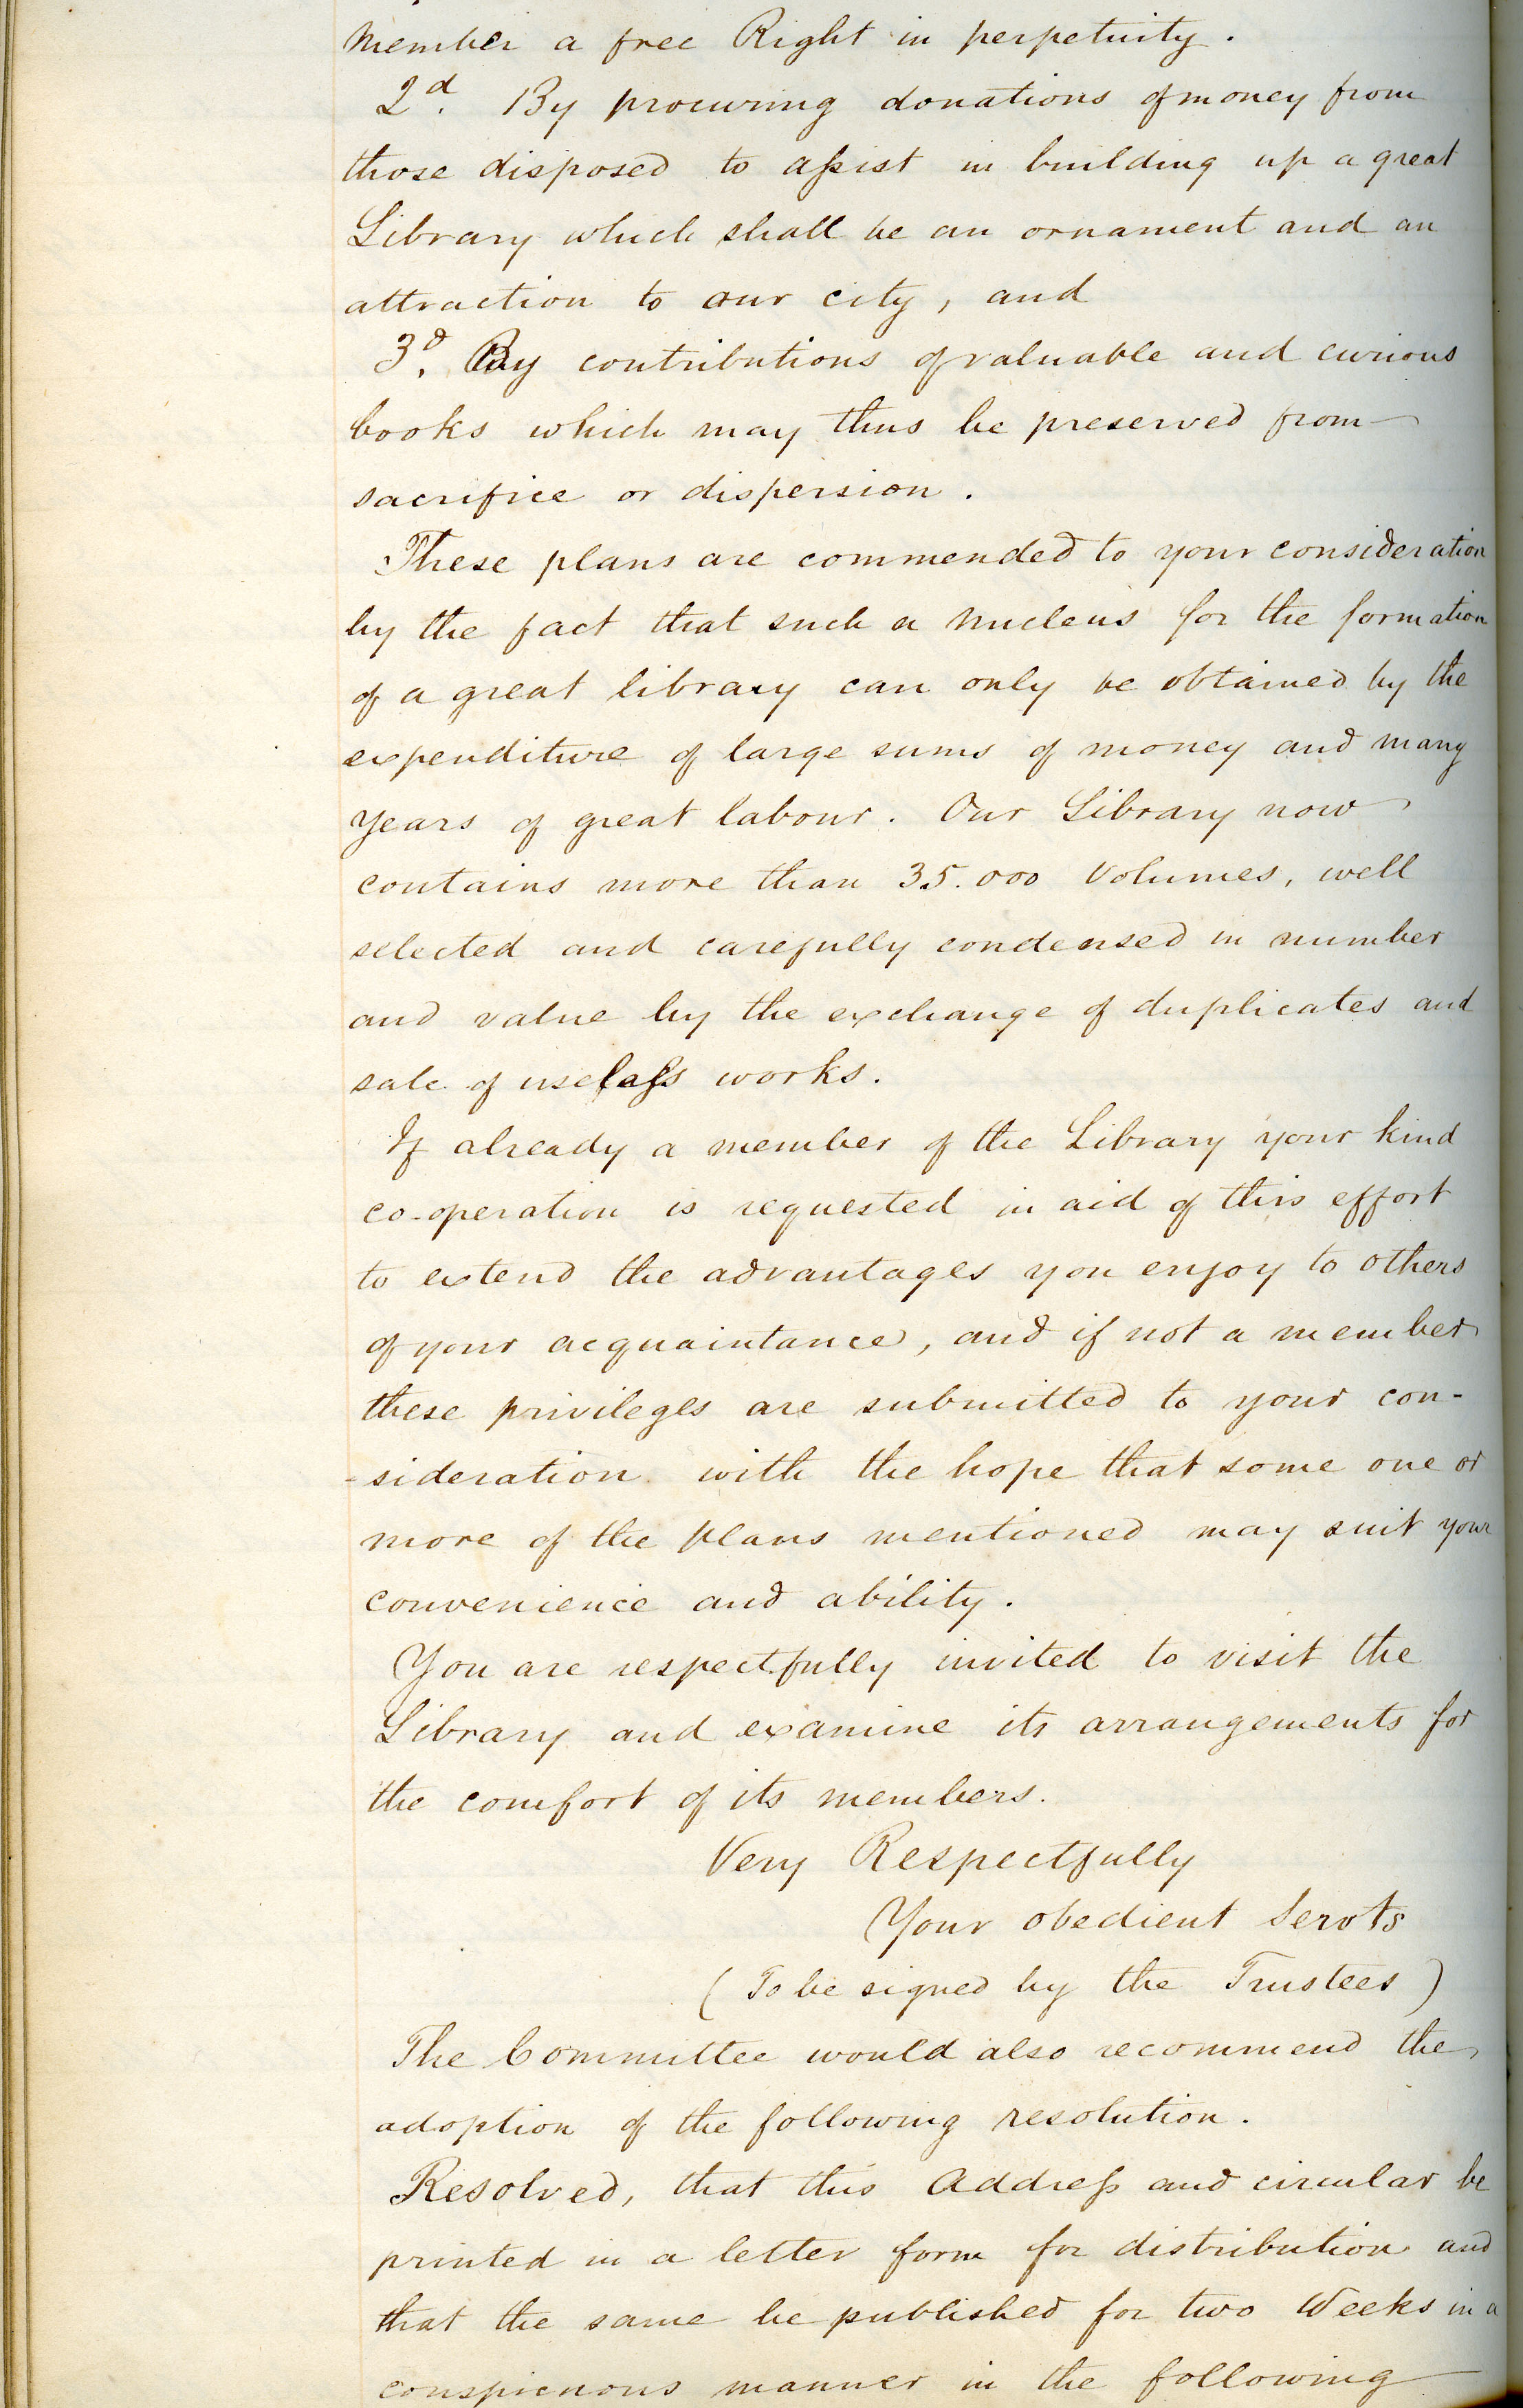 Member a free Right in perpetuity.
2d. By procuring donations of money from
those disposed to assist in building up a great
Library which shall be an ornament and an
attraction to our city, and
3d. By contributions of valuable and curious
books which may thus be preserved from
sacrifice or dispersion.
These plans are commended to your consideration
by the fact that such a Nucleus for the formation
of a great library can only be obtained by the
expenditure of large sums of money and many
years of great labour. Our Library now
contains more than 35.000 Volumes, well
selected and carefully condensed in number
and value by the exchange of duplicates and
sale of useless works.
If already a member of the Library your kind
co-operation is requested in aid of this effort
to extend the advantages you enjoy to others
of your acquaintance, and if not a member
these privileges are submitted to your con-
-sideration with the hope that some one or
more of the plans mentioned may suit your
convenience and ability.
You are respectfully invited to visit the
Library and examine its arrangements for
the comfort of its members.
Very Respectfully
Your obedient Servts
(To be signed by the Trustees)
The Committee would also recommend the
adoption of the following resolution.
Resolved, that this Address and circular be
printed in a letter form for distribution and
that the same be published for two Weeks in a
conspicuous manner in the following